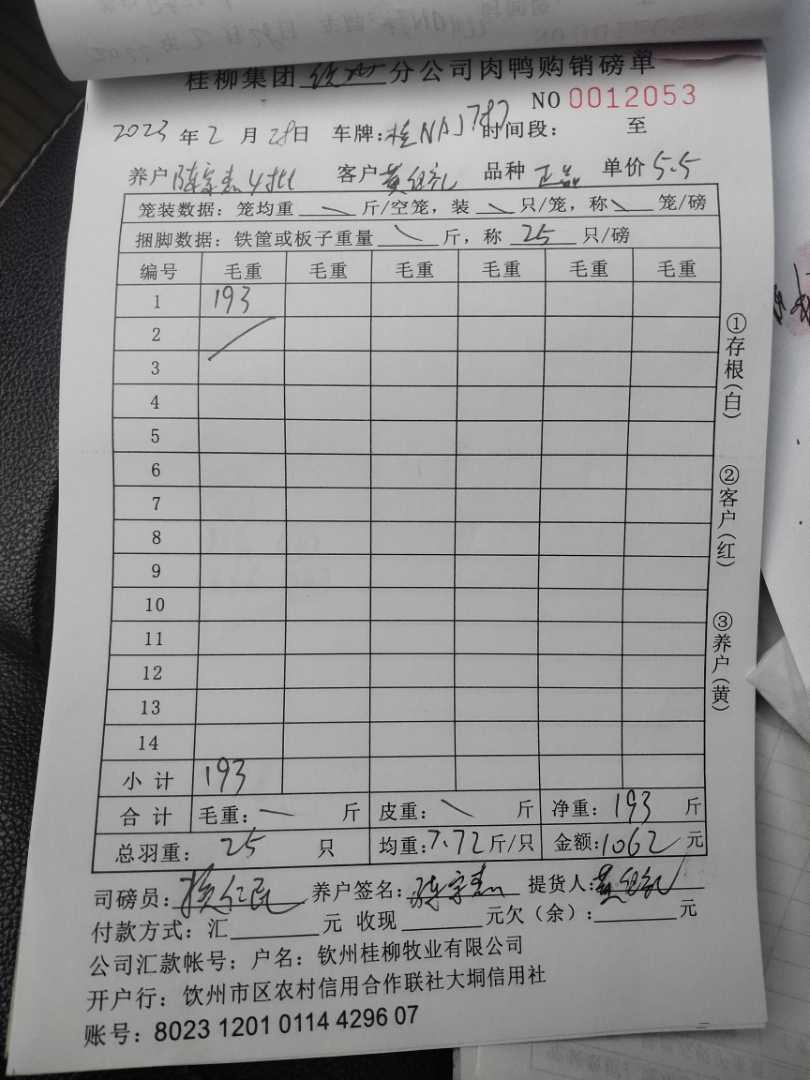 桂柳集团 钦州 分公司肉鸭购销磅单
NO 0012053
2023 年 2 月 28 日 车牌: 桂NAJ787 时间段: 至
养户 陈宗 4批 客户 黄 礼 品种 正品 单价 5.5
笼装数据: 笼均重 \ 斤/空笼, 装 \ 只/笼, 称 \ 笼/磅
捆脚数据: 铁筐或板子重量 \ 斤, 称 25 只/磅
编号 毛重 毛重 毛重 毛重 毛重 毛重
1 193
2
3
4
5
6
7
8
9
10
11
12
13
14
小计 193
合计 毛重: \ 斤 皮重: \ 斤 净重: 193 斤
总羽重: 25 只 均重: 7.72 斤/只 金额: 1062 元
司磅员: 养户签名: 陈宗 提货人: 黄 礼
付款方式: 汇 元 收现 元欠(余): 元
公司汇款帐号: 户名: 钦州桂柳牧业有限公司
开户行: 钦州市区农村信用合作联社大垌信用社
账号: 8023 1201 0114 4296 07
①存根(白)
②客户(红)
③养户(黄)